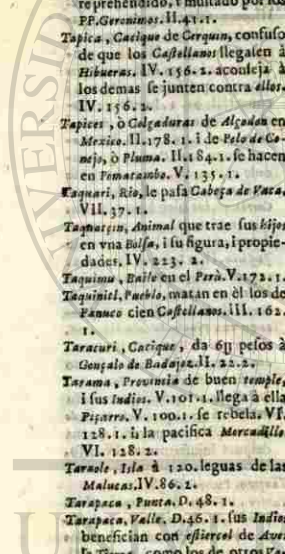 reprehendido, i multado por los
PP. Geronimos. II. 41. 1.
Tapica, Cacique de Cerquin, confuso
de que los Castellanos llegasen à
Hibueras. IV. 156. 2. aconseja à
los demas se junten contra ellos.
IV. 156. 2.
Tapices, ò Colgaduras de Algodon en
Mexico. II. 178. 1. i de Pelo de Co-
nejo, ò Pluma. II. 184. 1. se hacen
en Pomatambo. V. 135. 1.
Taquari, Rio, le pasa Cabeça de Vaca.
VII. 37. 1.
Taquatçin, Animal que trae sus hijos
en vna Bolsa, i su figura, i propie-
dades. IV. 223. 2.
Taquimu, Baile en el Perù. V. 172. 1.
Taquinitl, Pueblo, matan en èl los de
Panuco cien Castellanos. III. 162.
1.
Taracuri, Cacique, da 6ɥ pesos à
Gonçalo de Badajoz. II. 22. 2.
Tarama, Provincia de buen temple,
i sus Indios. V. 101. 1. llega à ella
Piçarro. V. 100. 1. se rebela. VI.
128. 1. i la pacifica Mercadillo.
VI. 128. 2.
Taraole, Isla à 120. leguas de las
Malucas. IV. 86. 2.
Tarapaca, Punta. D. 48. 1.
Tarapaca, Valle. D. 46. 1. sus Indios
benefician con estiercol de Aves
la Tierra, como los de otros Va-